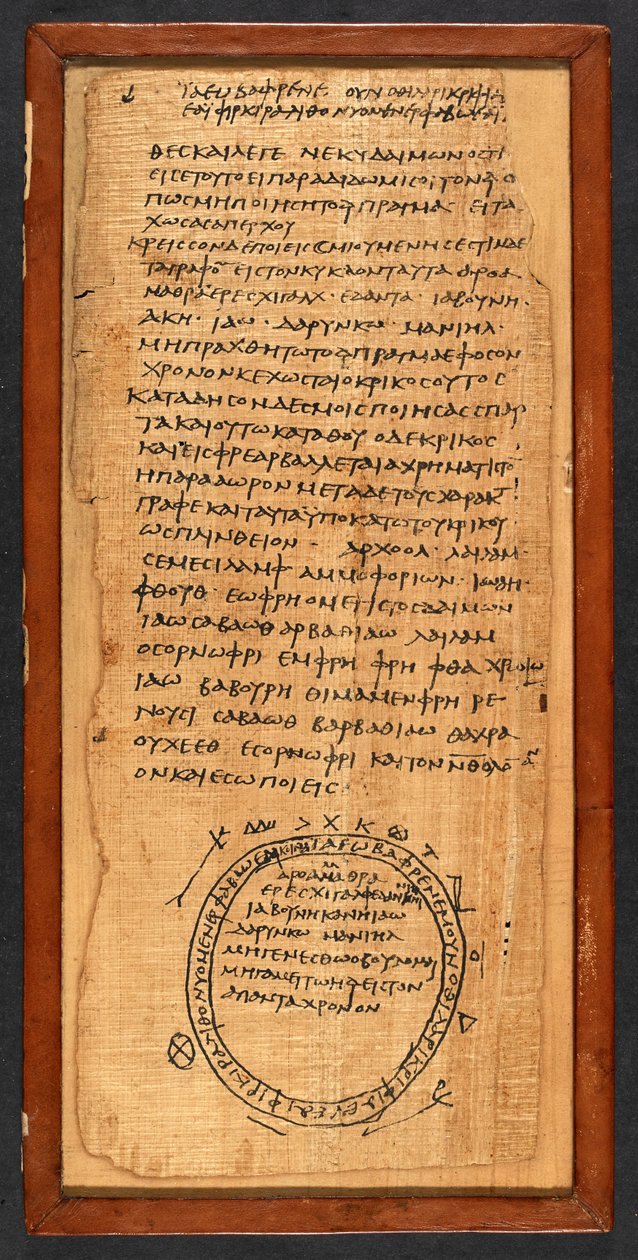 ϊαεωβαφρενε ουνοθιλαρικριφια
εαϊφιρκιραλιθονυομενερφαβωεαϊ
θεσκαιλεγε νεκυδαιμωνοστι
εισετουτοειπαραδιδωμισοιτον
πωσμηποιησητοπραγμα ειτα
χωσασαπερχου
κρεισσονδεποιεισσμιουμενησεστινδε
ταγραφο εισ τον κυκλοντανταυτα αροα
μαθραερεσχιγαλχ εδαντα ιαβουνη
ακη ϊαω δαρυνκω μανιηλ
μηπραχθητωτοπραγμαεφοσον
χρονονκεχωσταιοκρικοσουτοσ
καταδησονδεσμοισποιησασσπαρ
τακαιουτωκαταθου οδεκρικοσ
καιεισφρεαρβαλλεταιαχρηματιστο
ηπαραωρονμεταδετουσχαρακτ
γραφεκαιταυταϋποκατωτουκρικου
ωσπλινθειον αρχοολ λαιλαμ
σεμεσιλαμφ αμμοφοριων ιωαη
φθουθ εωφρηομεγιστοσδαιμων
ιαωσαβαωθαρβαθιαω λαιλαμ
οσορνωφρι εμφρη φρη φθα χρωιω
ιαω βαβουρη θιμαμενφρη ρε
νουσι σαβαωθ βαρβαθιαω θαχρα
ουχεεθ εσορνωφρι καιτον νθολο
ονκαιεσωποιεισ
Κ Τ
ϊαεωβαφρενεμουνοθιλαρικριφιαευεαιφιρκιραλιθονυομενερφαβωεαι
αροαμαθρα
ερεσχιγαλ
ιαβουνηκανηιαω
δαρυνκω μανιηλ
μηγενεσθω
μηγαμειτωηδειστον
απανταχρονον